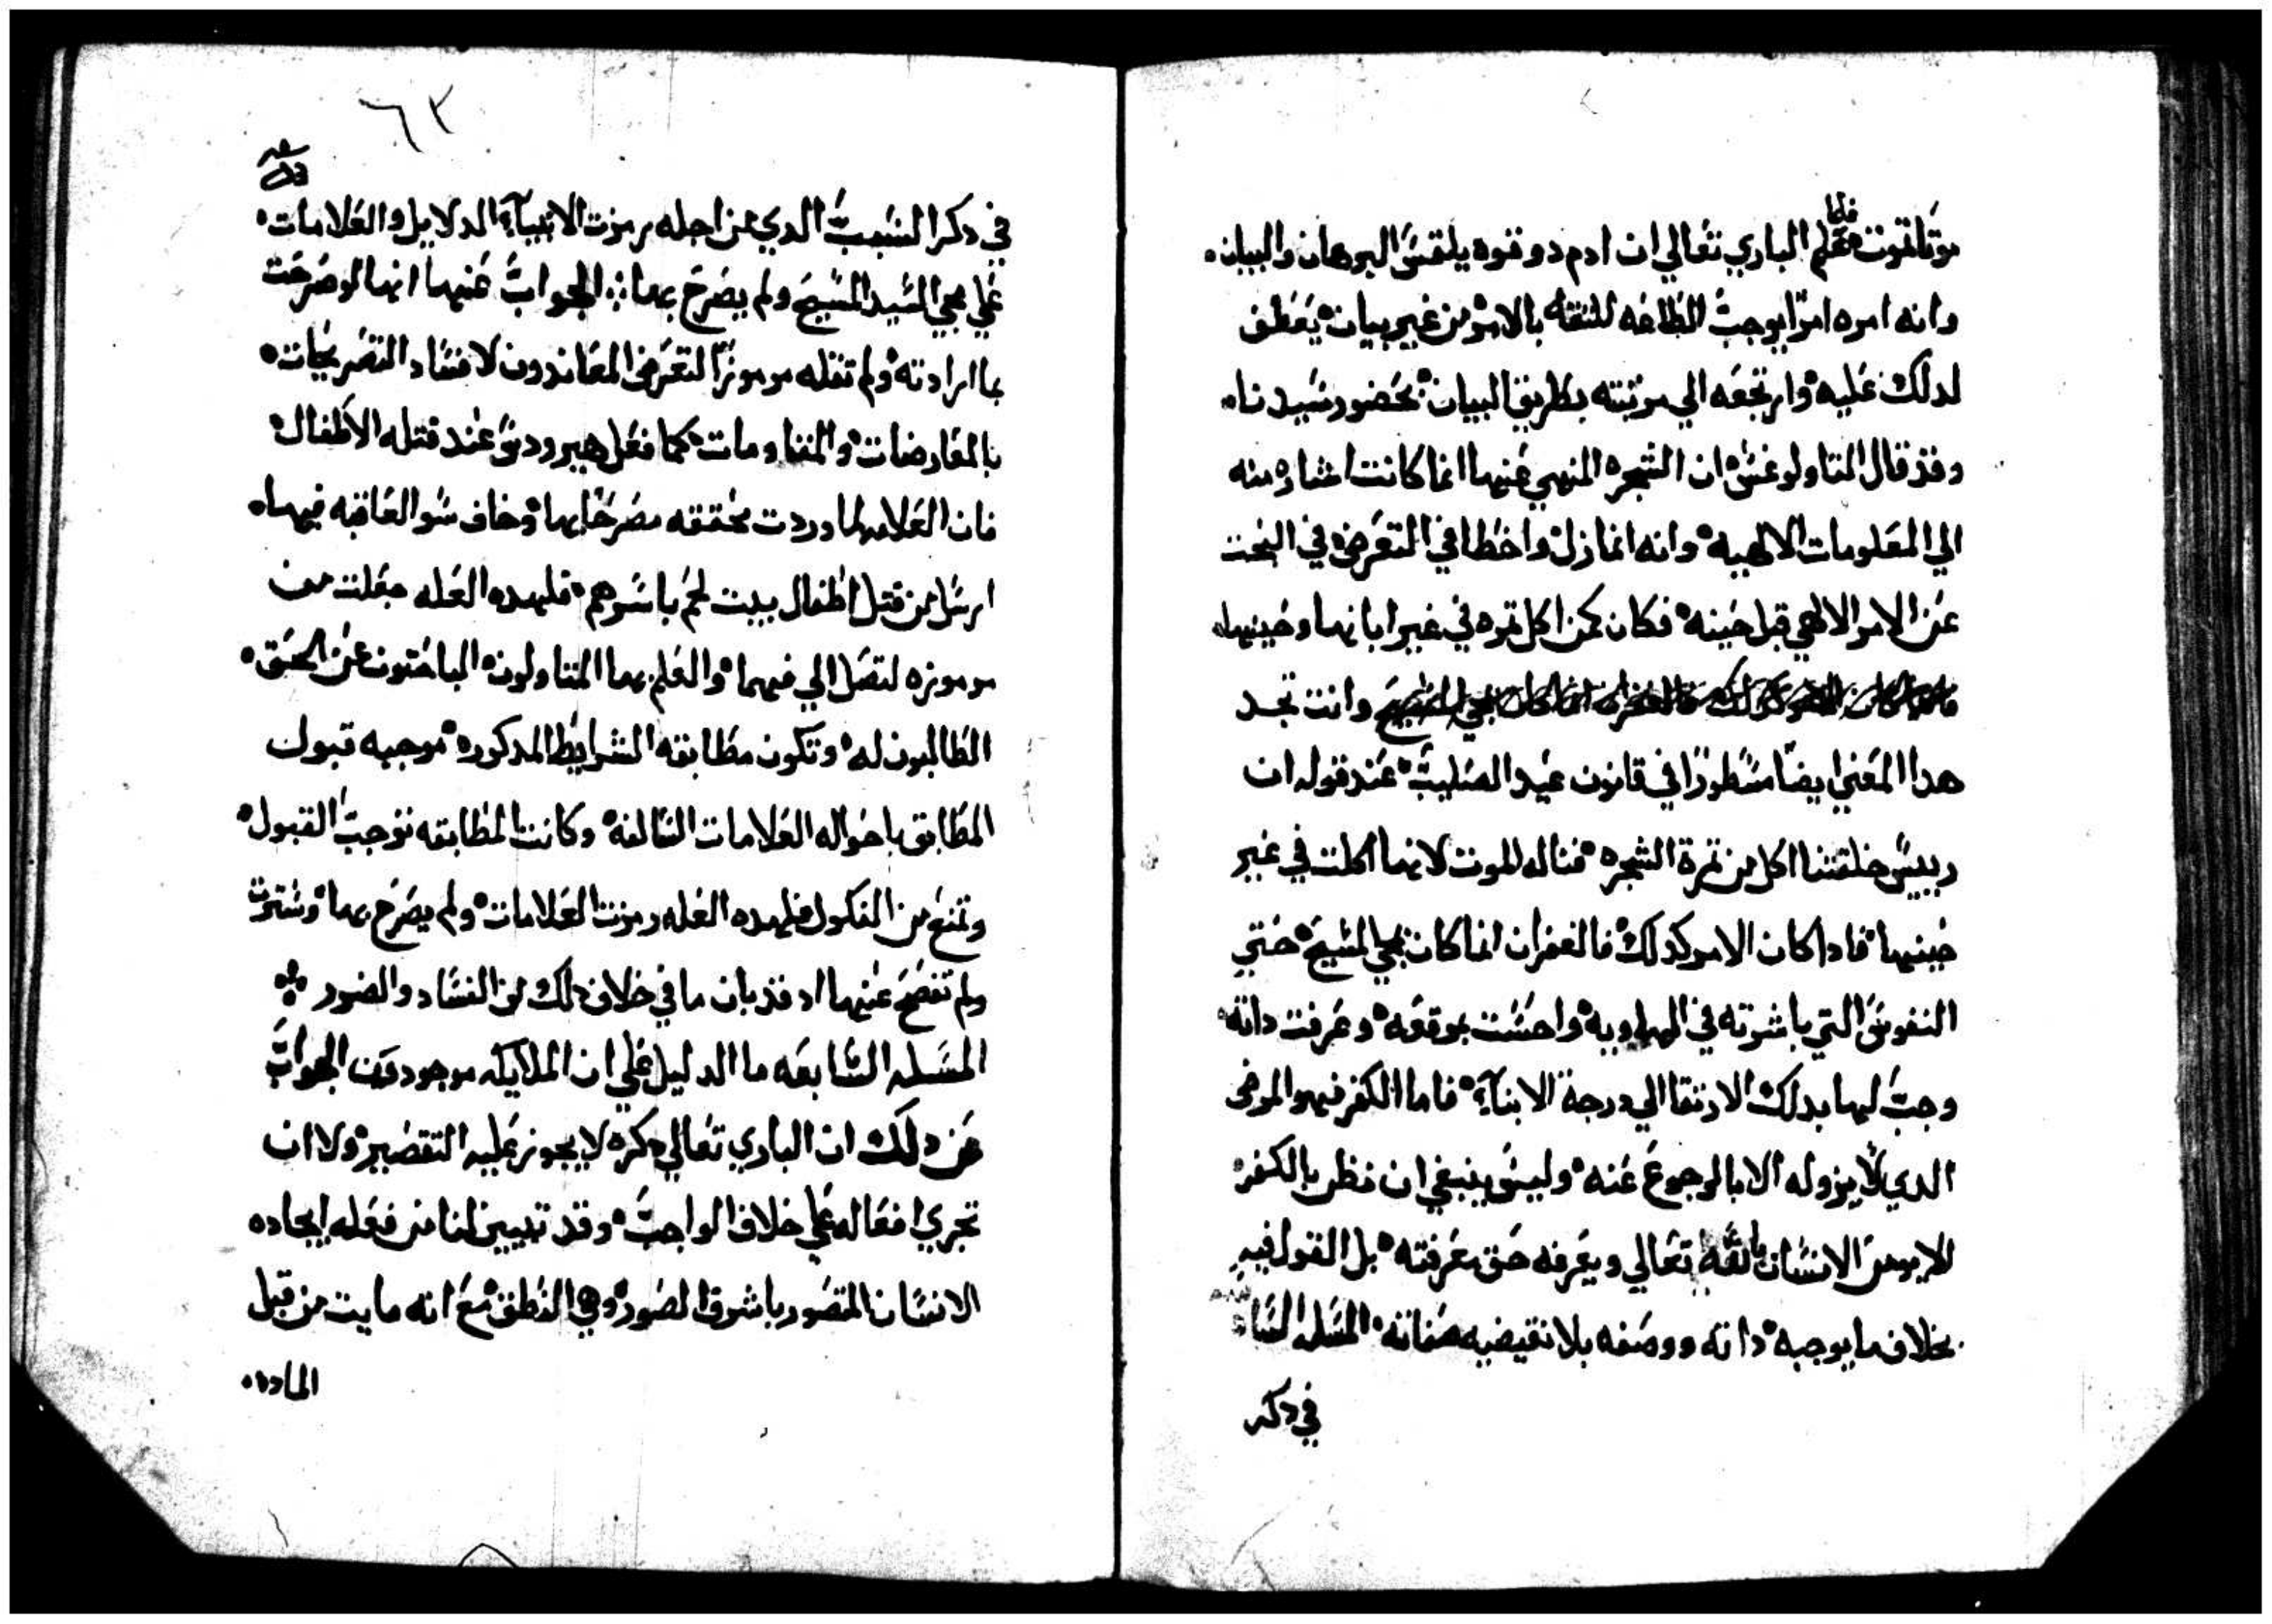 موتا تقوت فلما علم الباري تعالي ان ادم دوقوه يلتمس البرهان والبيان
وانه امره امرًا يوجب الطاعه للثقه بالامر من غير بيان يعطف
لدلك عليه وارتجعه الي مرتبته بطريق البيان بحضور سيدنا
وقد قال التاولوغس ان الشجره المنهي عنها انما كانت اشاره منه
الي المعلومات الالهيه وانه انما زل واخطا في التعرض في البحت
عن الامر الالهي قبل حينه فكان كمن اكل تمره في غير ابانها وحينها
وانت تجد
هدا المعني ايضًا مسطورًا في قانون عيد الصليب عند قوله ان
رييس خلقتنا اكل من تمرة الشجره فناله الموت لانها اكلت في غير
حينها فادا كان الامر كدلك فالغفران انما كان بمجي المسيح حتي
النفوس التي باشرته في الهاويه واحست بموقعه وعرفت داته
وجب لها بدلك الارتقا الي درجة الابنآء فاما الكفر فهو المرض
الدي لا يزوله الا بالرجوع عنه وليس ينبغي ان نظن بالكفر
الا يومن الانسان بالله تعالي ويعرفه حق معرفته بل القول فيه
بخلاف ما يوجبه داته ووصفه بلا تقيضيه صفاته المسله السا
في دكر
٦٢
في دكر السبب الدي من اجله رمزت الانبيآء الدلايل والعلامات
علي مجي السيد المسيح ولم يصرح بها الجواب عنها انها لو صرحت
بما ارادته ولم تقله مرموزًا لتعرض المعاندون لافساد التصريحات
بالمعارضات والمقاومات كما فعل هيرودس عند قتله الاطفال
فان العلامه لما وردت محققه مصرحًا بها وخاف سو العاقبه فيها
ارسل من قتل اطفال بيت لحم باسرهم فلهده العله جعلت من
مرموزه لتصل الي فهمها والعلم بها المتاولون الباحتون عن الحق
الطالبون له وتكون مطابقه الشرايط المدكوره موجبه قبول
المطابق باحواله العلامات السالفه وكانت المطابقه توجب القبول
وتمنع من النكول فلهده العله رمزت العلامات ولم يصرح بها وسترت
ولم تفصح عنها اد قد بان ما في خلاف دلك من الفساد والضرر
المسله السابعه ما الدليل علي ان الملايكه موجودين الجواب
عن دلك ان الباري تعالي دكره لا يجوز عليه التقصير ولا ان
تجري افعاله علي خلاف الواجب وقد تبيين لنا من فعله ايجاده
الانسان المتصور باشرف الصور وهي النطق مع انه مايت من قبل
الماده